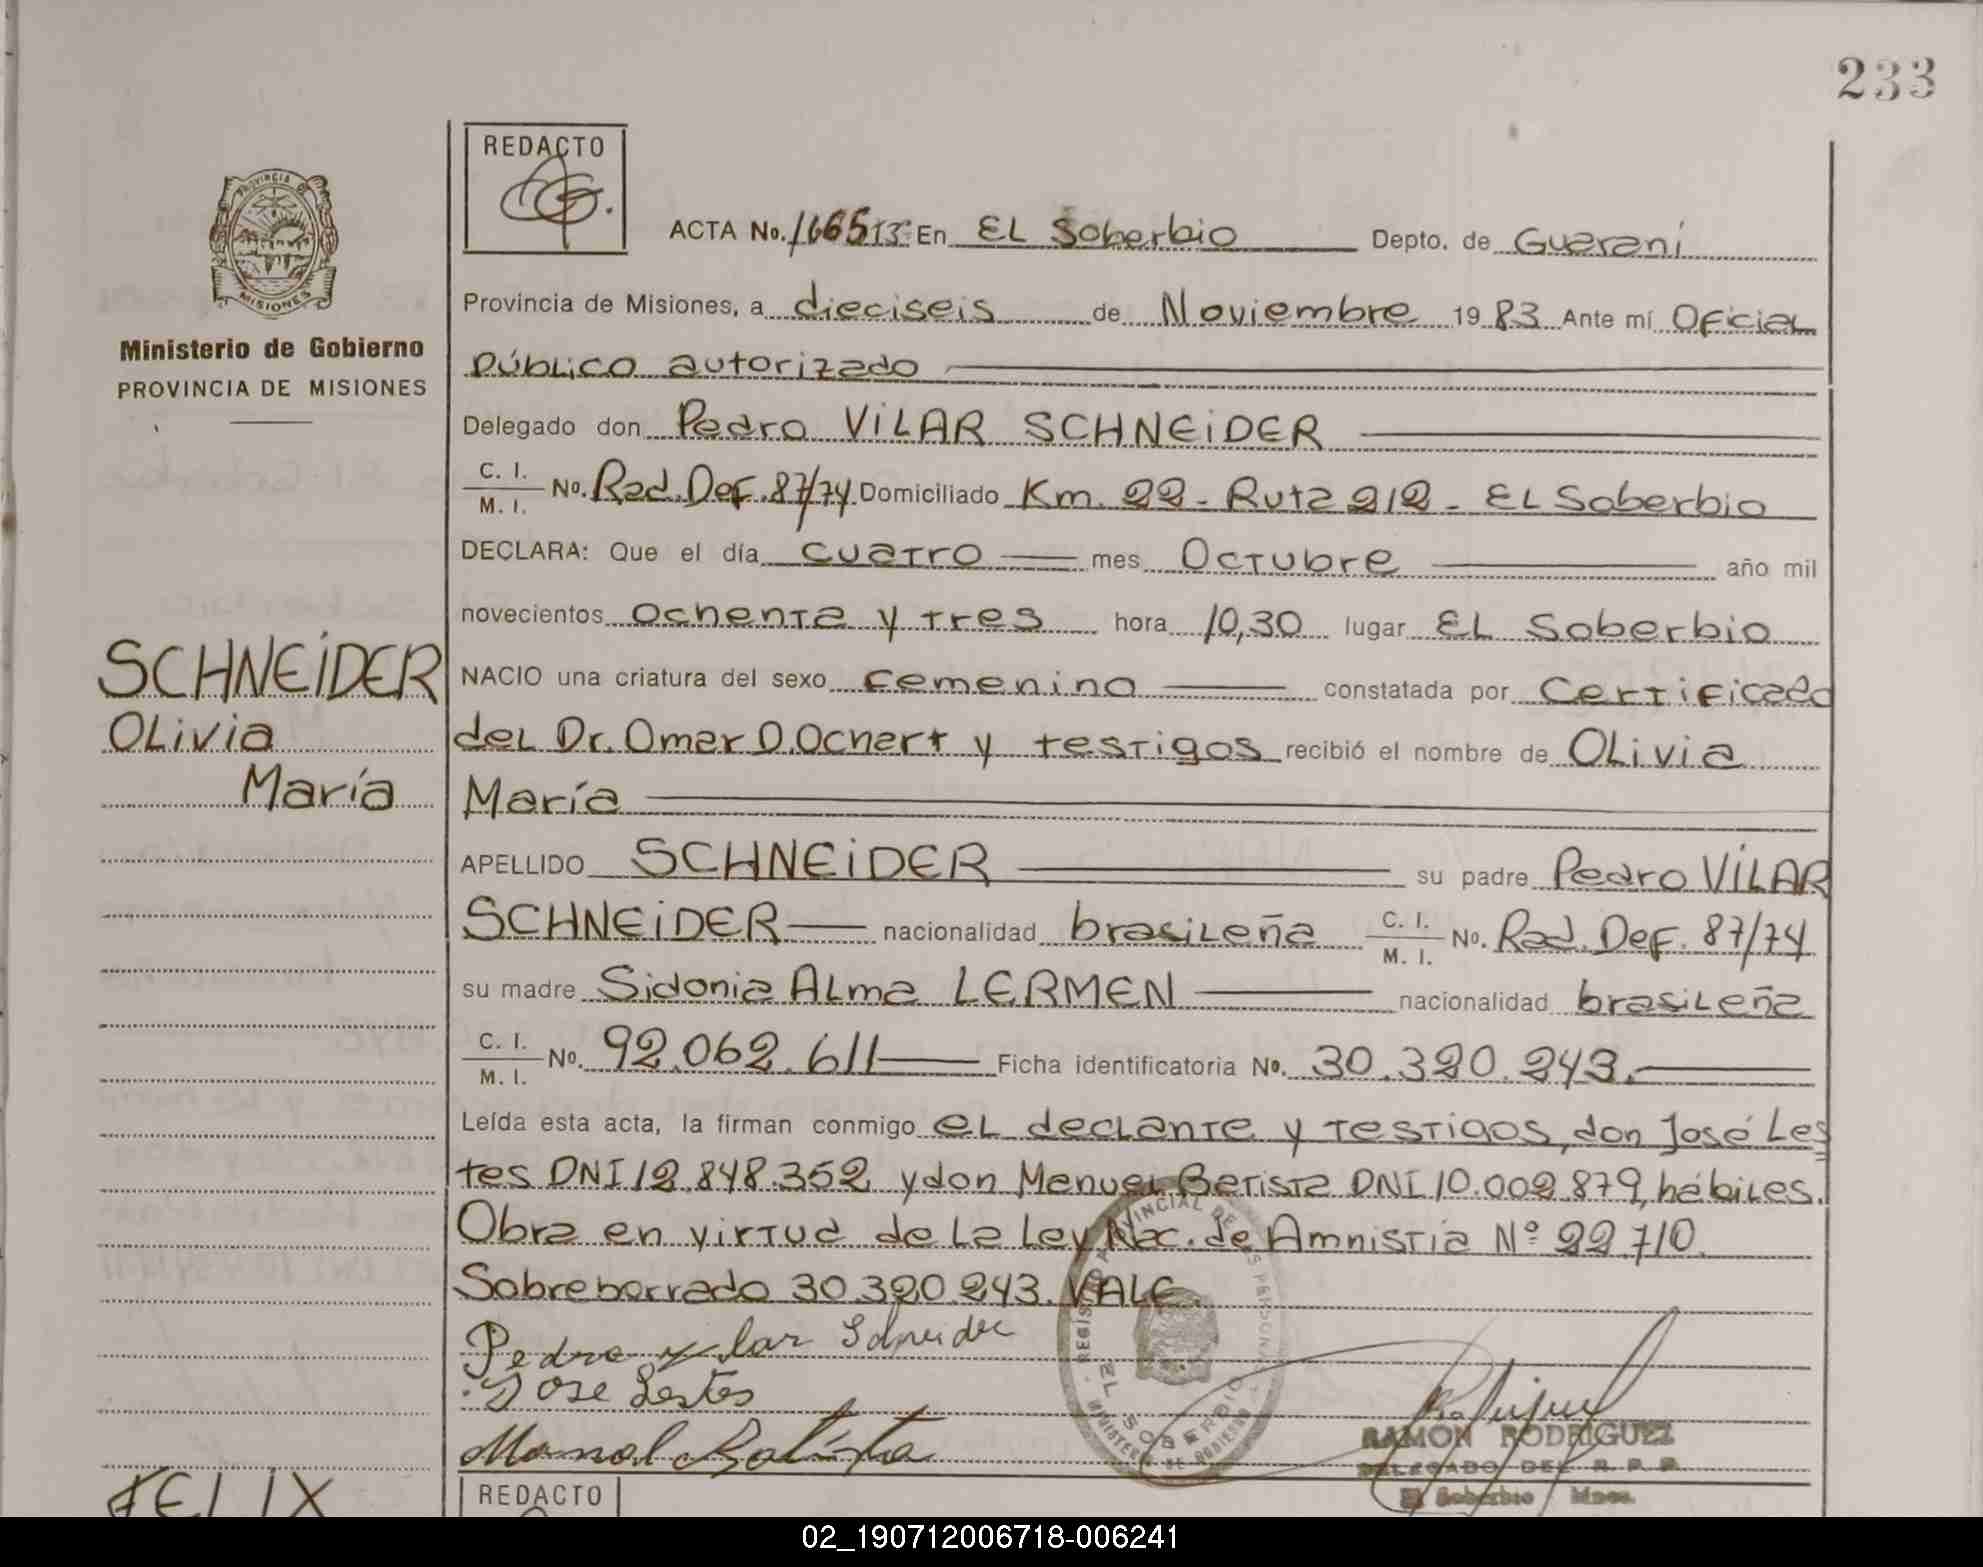 233
REDACTO
ACTA No. 16651S En EL Soberbio Depto. de Guaraní
PROVINCIA DE
MISIONES
Ministerio de Gobierno
PROVINCIA DE MISIONES
Provincia de Misiones, a dieciseis de Noviembre 1983 Ante mí Oficial
Público autorizado
Delegado don Pedro ViLAR SCHNEiDER
C. I.
M. I. No. Rad. Def. 87/74 Domiciliado Km. 22 - Ruta 212 - EL Soberbio
DECLARA: Que el día cuatro mes Octubre año mil
novecientos ochenta y tres hora 10,30 lugar EL Soberbio
SCHNEiDER
OLivia
María
NACIO una criatura del sexo femenino constatada por certificado
deL Dr. Omar D. Ochert y testigos recibió el nombre de OLivia
María
APELLIDO SCHNEiDER su padre Pedro ViLAR
SCHNEiDER nacionalidad brasileña C. I.
M. I. No. Rad. Def. 87/74
su madre Sidonia ALma LERMEN nacionalidad brasileña
C. I.
M. I. No. 92.062.611 Ficha identificatoria No. 30.320.243.
Leída esta acta, la firman conmigo eL declante y testigos, don José Les
tes DNI 12.848.352 y don Manuel Batista DNI 10.002.879, hábiles.
Obra en virtud de La Ley Nac. de Amnistía Nº 22.710.
Sobreborrado 30.320.243. VALE.
Pedro vilar Schneider
Jose Lestes
Manoel Batista
REGISTRO PROVINCIAL DE LAS PERSONAS
EL SOBERBIO
MINISTERIO DE GOBIERNO
RAMON RODRIGUEZ
DELEGADO DEL R. P. P.
El Soberbio Mnes.
FELIX
REDACTO
02_190712006718-006241